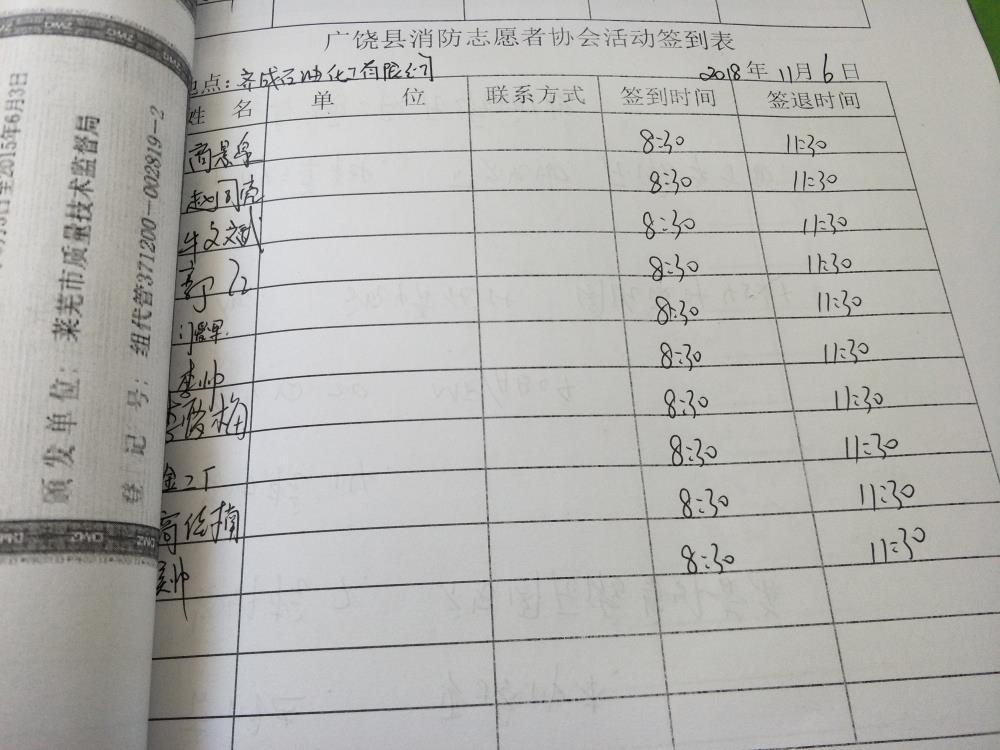 广饶县消防志愿者协会活动签到表
点：齐成石油化工有限公司 2018年11月6日
姓名 单位 联系方式 签到时间 签退时间
8:30 11:30
8:30 11:30
牛文斌 8:30 11:30
8:30 11:30
8:30 11:30
李帅 8:30 11:30
8:30 11:30
8:30 11:30
8:30 11:30
帅 8:30 11:30
至2015年6月3日
颁发单位：莱芜市质量技术监督局
登记号：组代管371200-002819-2